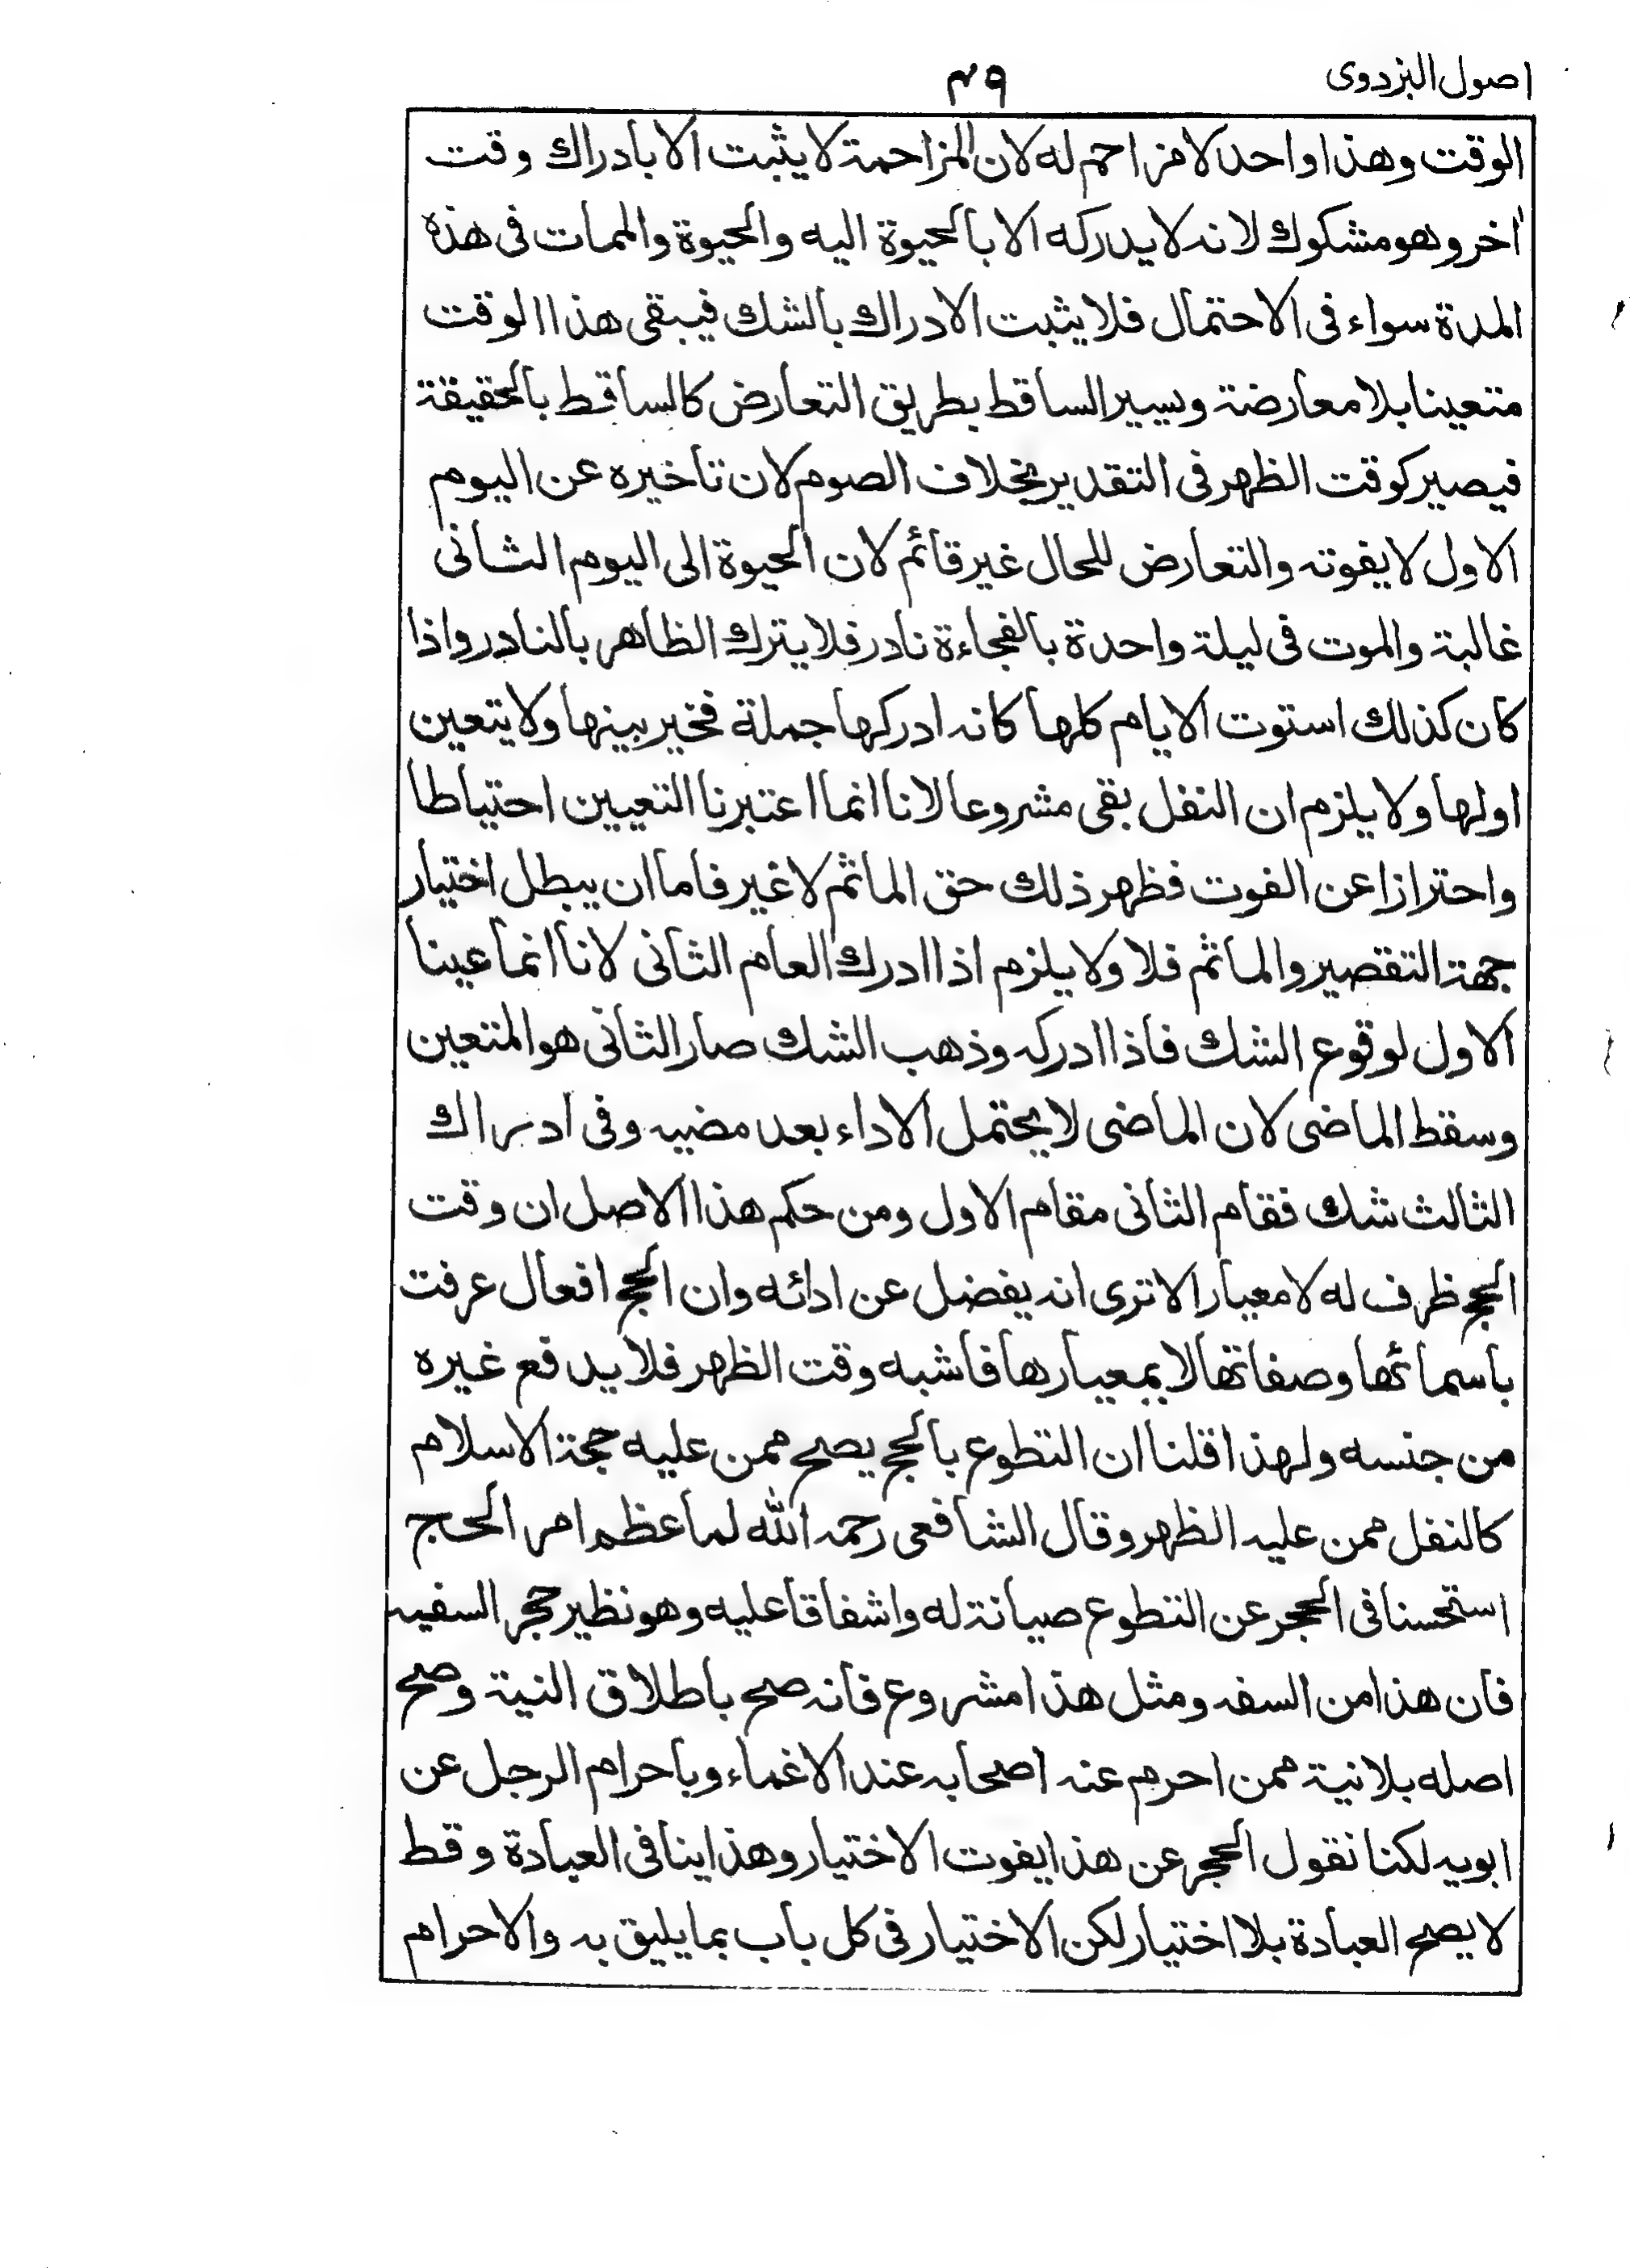 اصول البزدوى
٤٩
الوقت وهذا واحد لا مزاحم له لان المزاحمة لا يثبت الا بادراك وقت
اخر وهو مشكوك لانه لا يدركه الا بالحيوة اليه والحيوة والممات فى هذه
المدة سواء فى الاحتمال فلا يثبت الادراك بالشك فيبقى هذا الوقت
متعينا بلا معارضة ويسير الساقط بطريق التعارض كالساقط بالحقيقة
فيصير كوقت الظهر فى التقدير بخلاف الصوم لان تاخيره عن اليوم
الاول لا يفوته والتعارض للحال غير قائم لان الحيوة الى اليوم الثانى
غالبة والموت فى ليلة واحدة بالفجاءة نادر فلا يترك الظاهر بالنادر واذا
كان كذلك استوت الايام كلها كانه ادركها جملة فخير بينها ولا يتعين
اولها ولا يلزم ان النفل بقى مشروعا لانا انما اعتبرنا التعيين احتياطا
واحترازا عن الفوت فظهر ذلك حق الماثم لا غير فاما ان يبطل اختيار
جهة التقصير والماثم فلا ولا يلزم اذا ادرك العام الثانى لانا انما عينا
الاول لوقوع الشك فاذا ادركه وذهب الشك صار الثانى هو المتعين
وسقط الماضى لان الماضى لا يحتمل الاداء بعد مضيه وفى ادراك
الثالث شك فقام الثانى مقام الاول ومن حكم هذا الاصل ان وقت
الحج ظرف له لا معيار الا ترى انه يفضل عن ادائه وان الحج افعال عرفت
باسمائها وصفاتها لا بمعيارها فاشبه وقت الظهر فلا يدفع غيره
من جنسه ولهذا قلنا ان التطوع بالحج يصح ممن عليه حجة الاسلام
كالنفل ممن عليه الظهر وقال الشافعى رحمه الله لما عظم امر الحج
استحسنا فى الحجر عن التطوع صيانة له واشفاقا عليه وهو نظير حجر السفيه
فان هذا من السفه ومثل هذا مشروع فانه صح باطلاق النية وصح
اصله بلا نية ممن احرم عنه اصحابه عند الاغماء وباحرام الرجل عن
ابويه لكنا نقول الحجر عن هذا يفوت الاختيار وهذا ينافى العبادة وقط
لا يصح العبادة بلا اختيار لكن الاختيار فى كل باب بما يليق به والاحرام